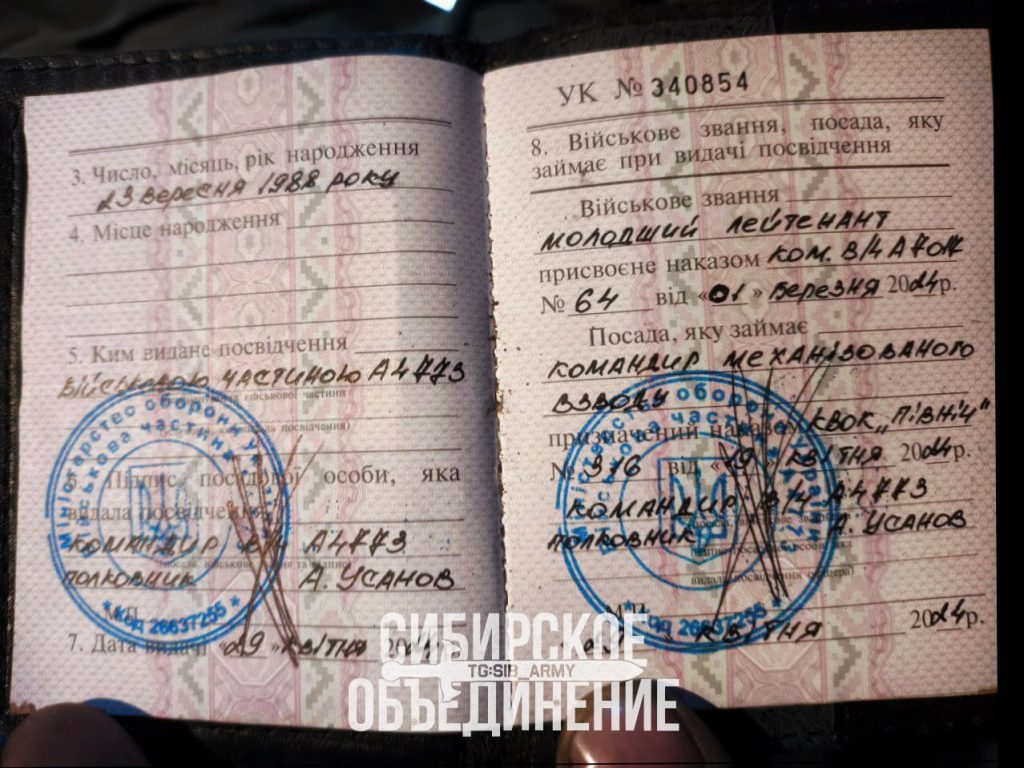 3. Число, місяць, рік народження
23 вересня 1988 року
4. Місце народження
5. Ким видане посвідчення
військовою частиною А4773
6. Підпис посадової особи, яка
видала посвідчення
командир в/ч А4773
полковник А. Усанов
М.П.
7. Дата видачі «29» квітня 2024р.
Міністерство оборони України
військова частина
* Код 26637255 *
УК № 340854
8. Військове звання, посада, яку
займає при видачі посвідчення
Військове звання
молодший лейтенант
присвоєне наказом ком. в/ч А7017
№ 64 від «01» березня 2024р.
Посада, яку займає
командир механізованого
взводу
призначений наказом КВОК „Північ"
№ 316 від «19» квітня 2024р.
командир в/ч А4773
полковник А. Усанов
М.П.
квітня 2024р.
* Код 26637255 *
СИБИРСКОЕ
TG:SIB_ARMY
ОБЪЕДИНЕНИЕ